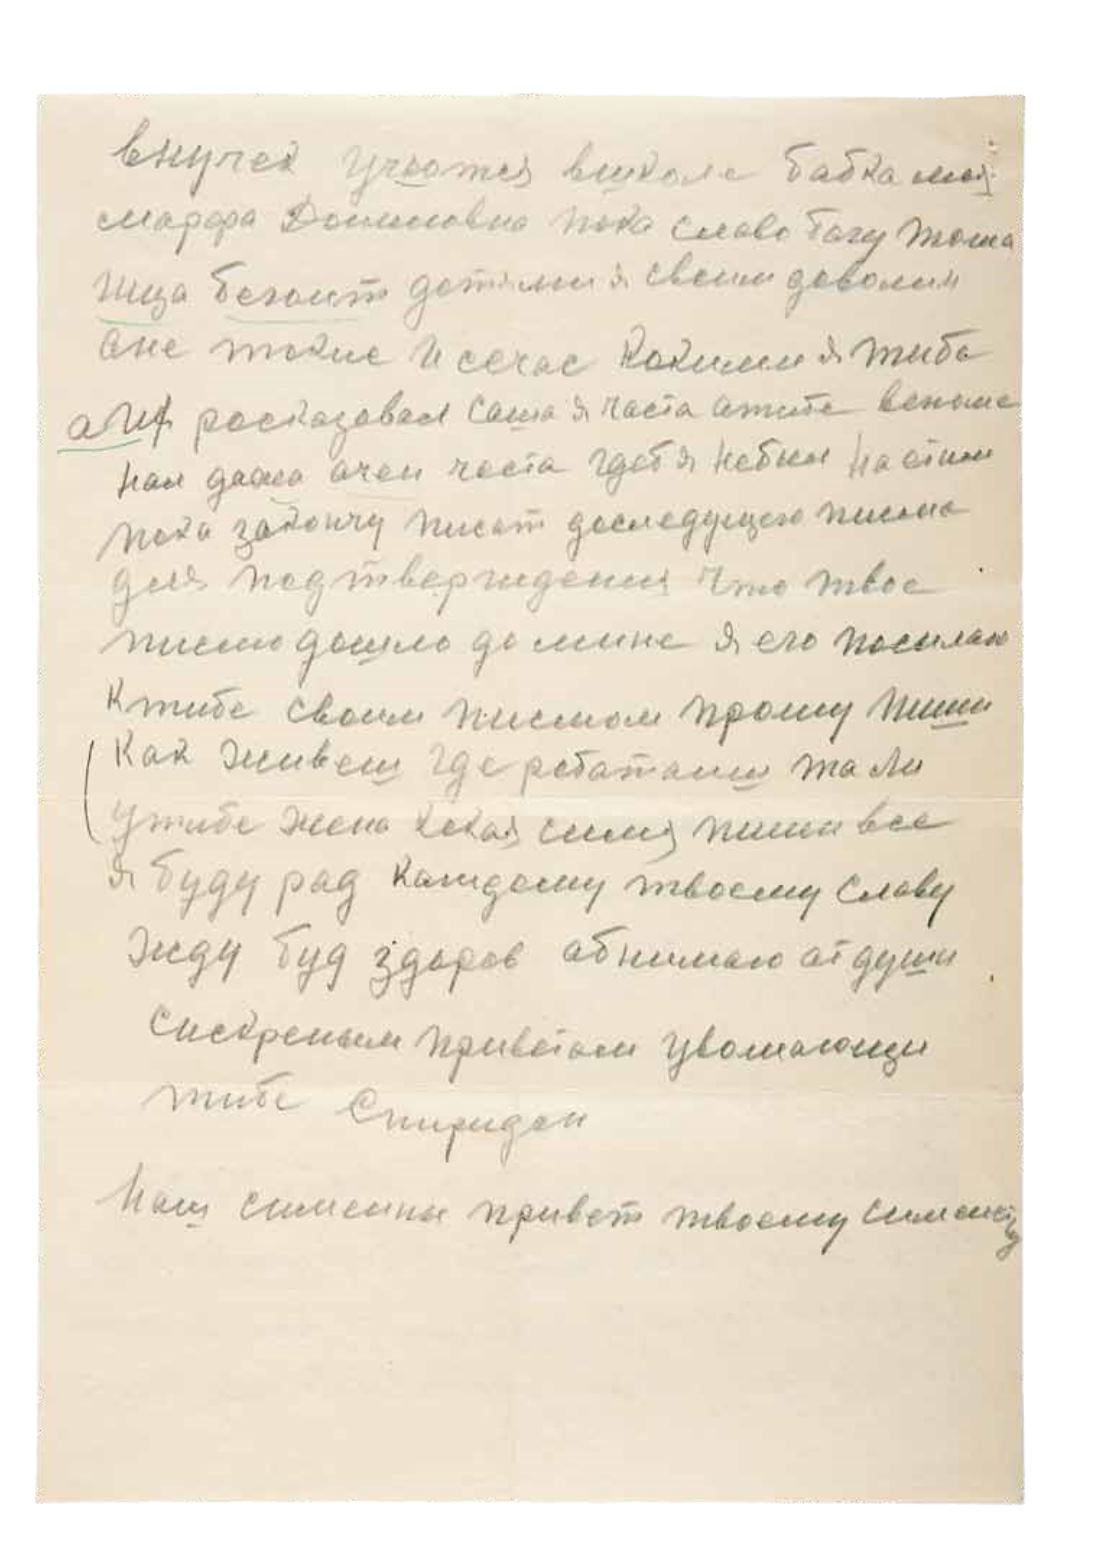 внучек учаотся вшколе бабка моя
марфа Дониловна пока славо богу тожа
жива бегаит детями я своим доволин
оне токие и сечас кокими я тибе
о их росказовал Саша я часта отибе вспоми
нал дажа очен часта гдеб я небыл На етим
пока закончу писат доследущево писма
для подтверждения Что твое
писмо дошло до мине я его посилаю
К тибе своим писмом прошу пиши
Как живеш где роботаиш жа ли
утибе жена кокая симя пиши все
я буду рад Каждому твоему славу
жду буд здоров абнимаю от души
Сискреным приветом уважающи
тибе Спиридон
Наш сименны привет твоему сименству